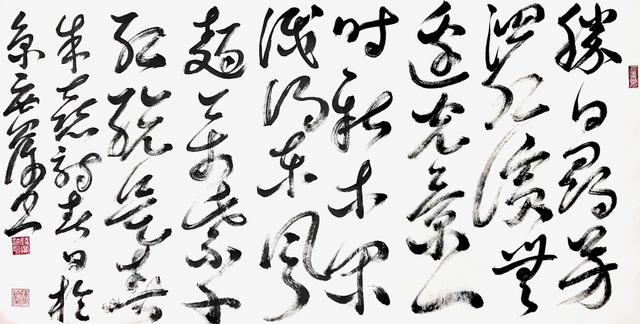 勝日尋芳
泗水濱無
邊光景一
時新等閑
識得東風
面萬紫千
紅總是春
朱熹詩春日於
京